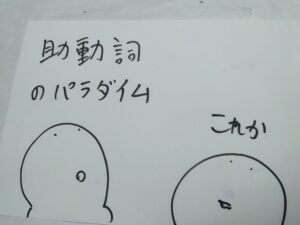 助動詞
のパラダイム
これか